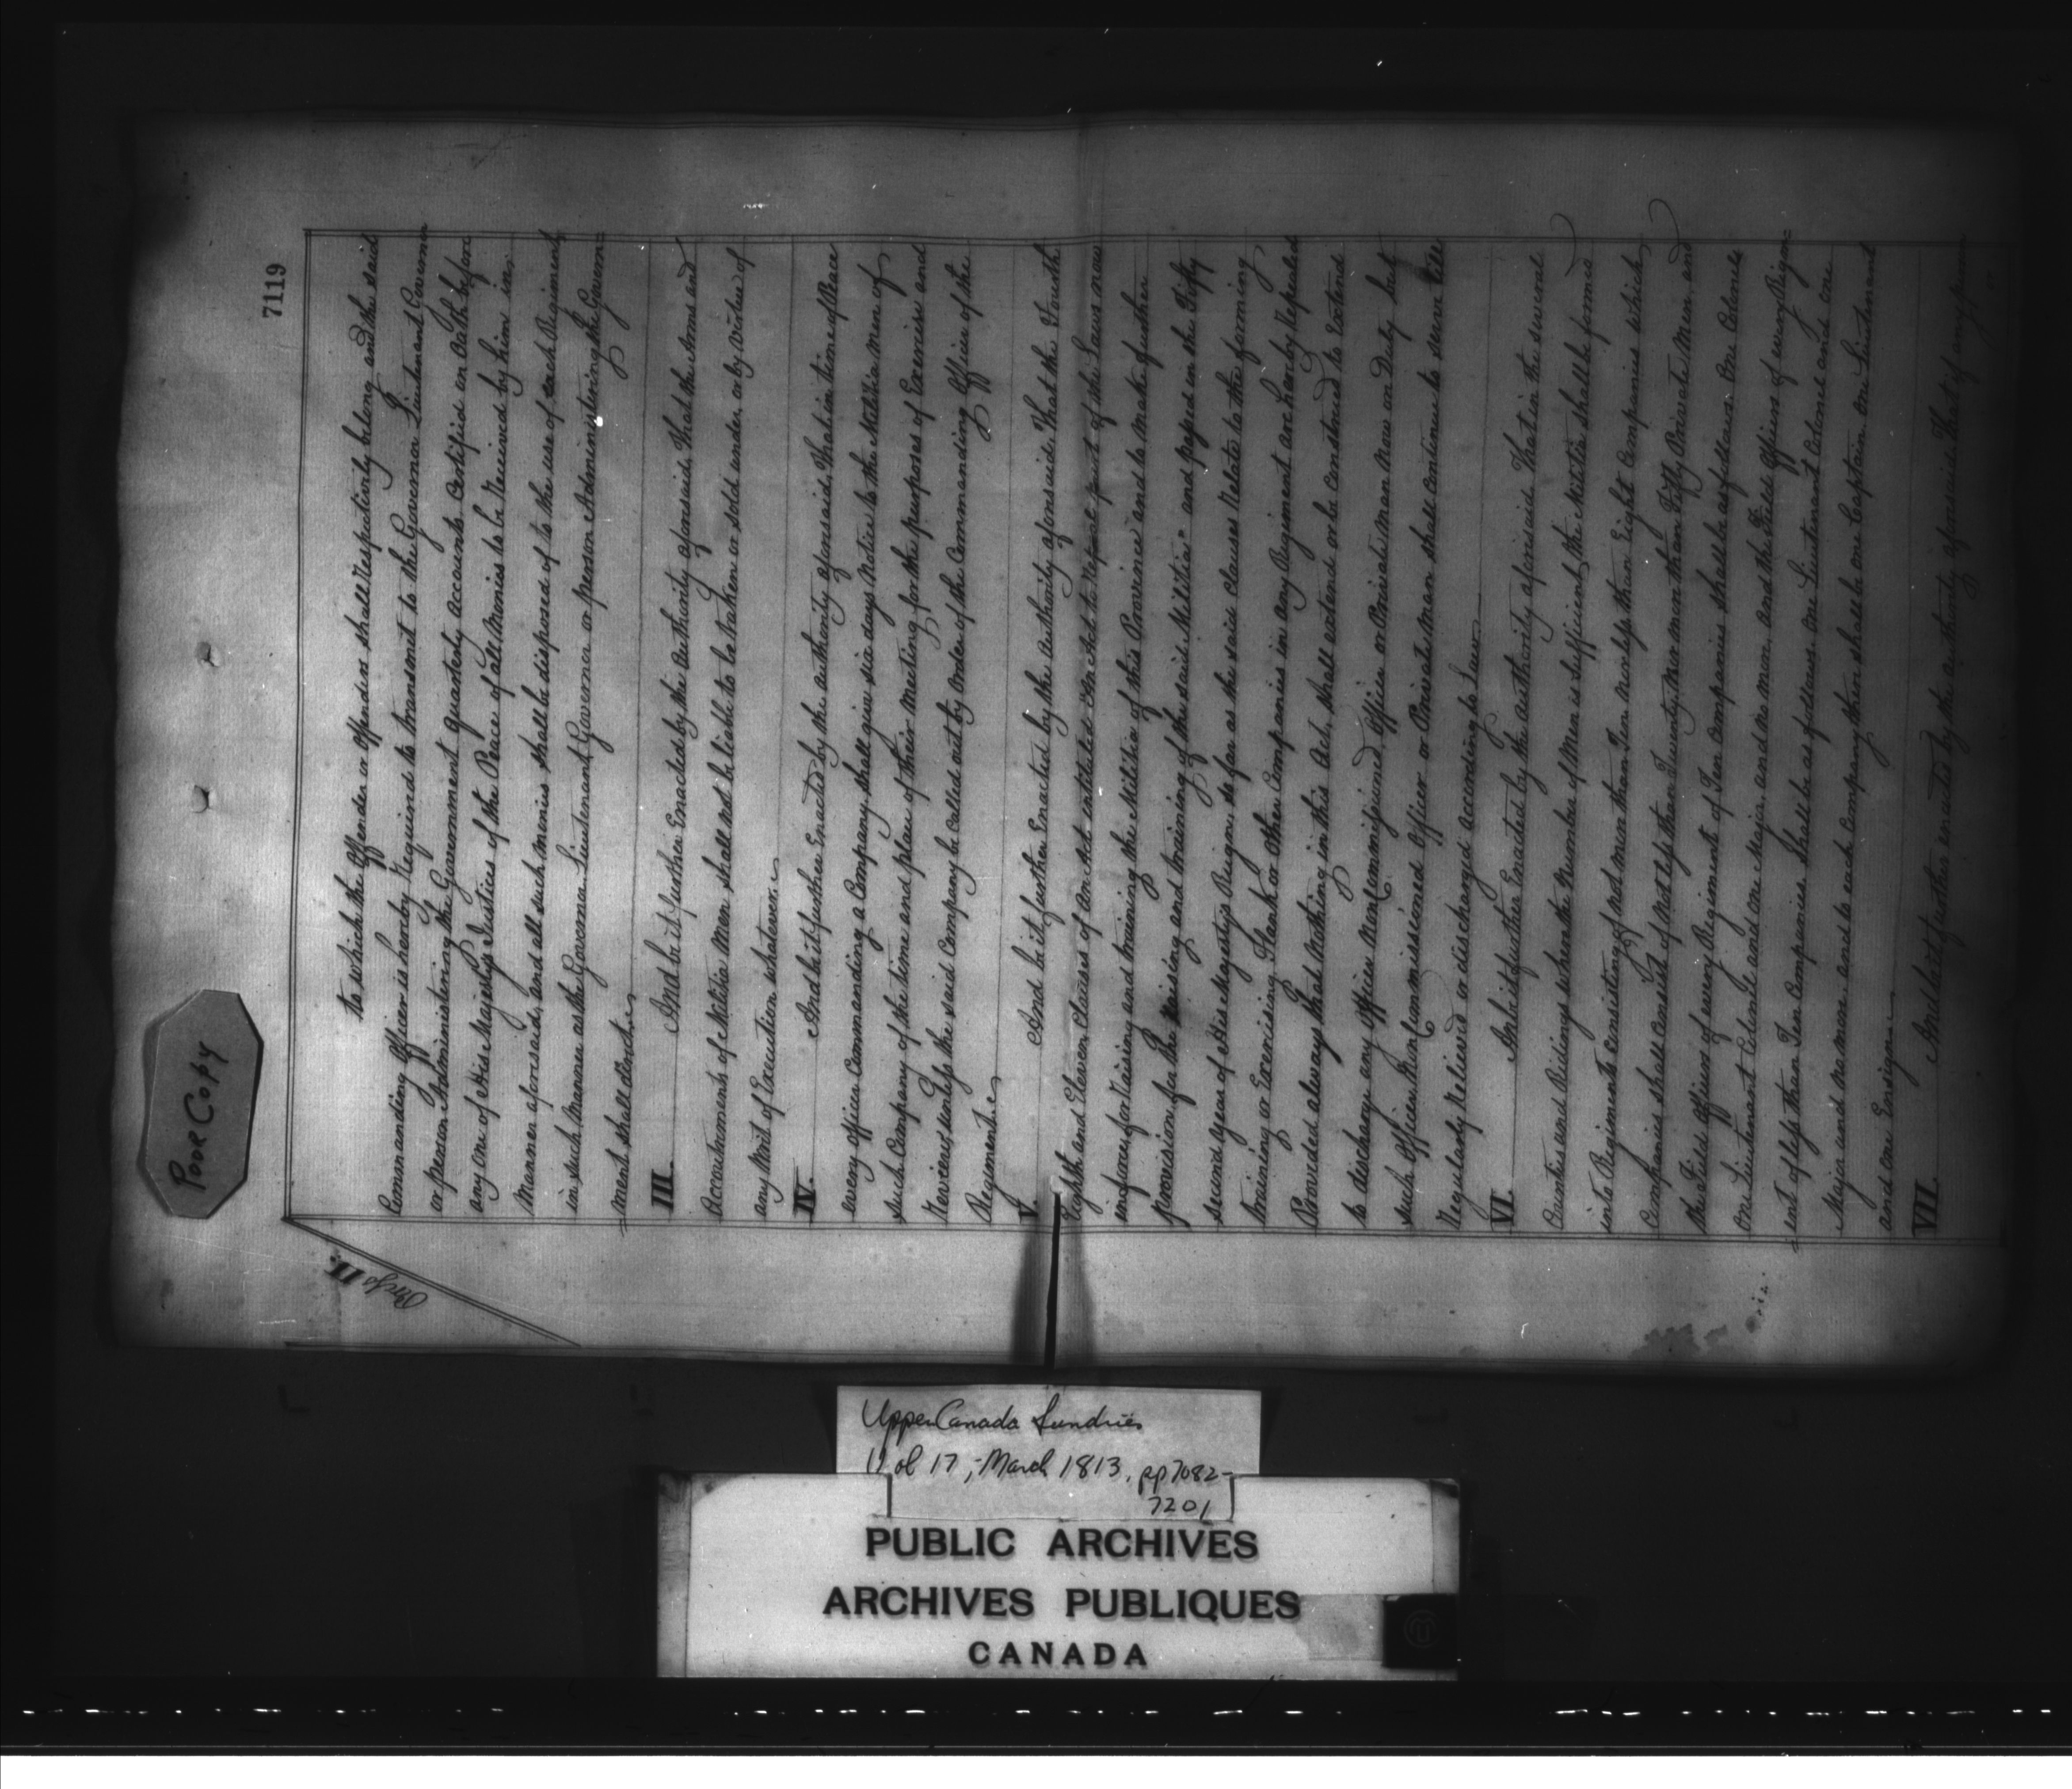 7119
Poor Copy
Page II.
to which the Offender or Offenders shall respectively belong and the said
Commanding Officer is hereby Required to transmit to the Governor Lieutenant Governor
or person Administering the Government quarterly accounts Certified on Oath before
any one of His Majestys Justices of the Peace of all Monies to be Received by him in
Manner aforesaid, and all such monies shall be disposed of to the use of each Regiment
in such Manner as the Governor Lieutenant Governor or person Administering the Govern=
=ment shall direct.
III. And be it further Enacted by the Authority aforesaid That the Arms and
Accoutrements of Militia Men shall not be liable to be taken or sold under or by virtue of
any Writ of Execution whatever.
IV. And be it further Enacted by the authority aforesaid, That in time of Peace
every officer Commanding a Company, shall give six days Notice to the Militia Men of
such Company of the time and place of their Meeting for the purposes of Exercise and
Review, unless the said Company be Called out by order of the Commanding Officer of the
Regiment.
V. And be it further Enacted by the Authority aforesaid That the Fourth
Eighth and Eleven Clauses of An Act intitled "An Act to Repeal part of the Laws now
in force for Raising and training the Militia of this Province and to make further
provision for the raising and training of the said Militia" and passed in the Fifty
second year of His Majestys Reign, so far as the said clauses Relate to the forming
training or Exercising Flank or other Companies in any Regiment are hereby Repealed
Provided always that Nothing in this Act, shall extend or be Construed to Extend
to discharge any Officer Non Commissioned Officer or Private man now on Duty but
such Officer Non Commissioned Officer or Private man shall continue to serve till
Regularly Relieved or discharged according to Law.
VI. And be it further Enacted by the authority aforesaid That in the several
Counties and Ridings where the Number of Men is sufficient, the Militia shall be formed
into Regiments consisting of not more than Ten nor less than Eight Companies which
Companies shall Consist of Not less than Twenty, Nor more than Fifty Private Men, and
the Field Officers of every Regiment of Ten Companies shall be as follows One Colonel
One Lieutenant Colonel and one Major, and no more, and the Field Officers of every Regim=
=ent of less than Ten Companies Shall be as follows One Lieutenant Colonel and one
Major and no more, and to each Company there shall be one Captain One Lieutenant
and one Ensign.
VII. And be it further enacted by the authority aforesaid That if any
Upper Canada Sundries
Vol 17, March 1813, pp 7082-
7201
PUBLIC ARCHIVES
ARCHIVES PUBLIQUES
CANADA